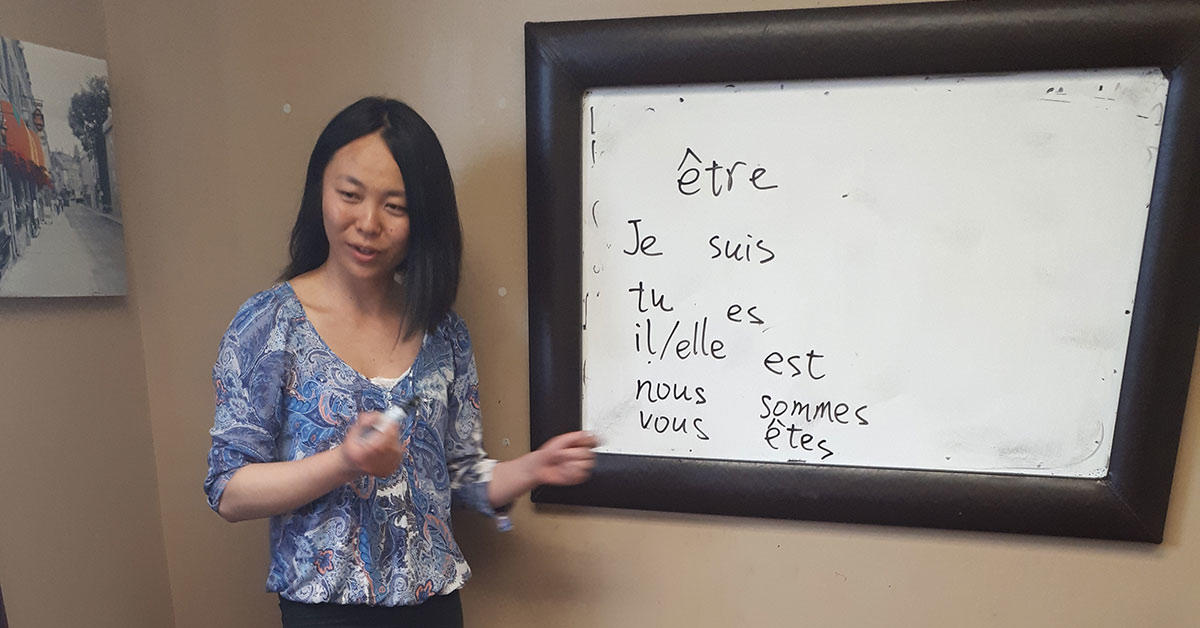 être
Je suis
tu es
il/elle est
nous sommes
vous êtes